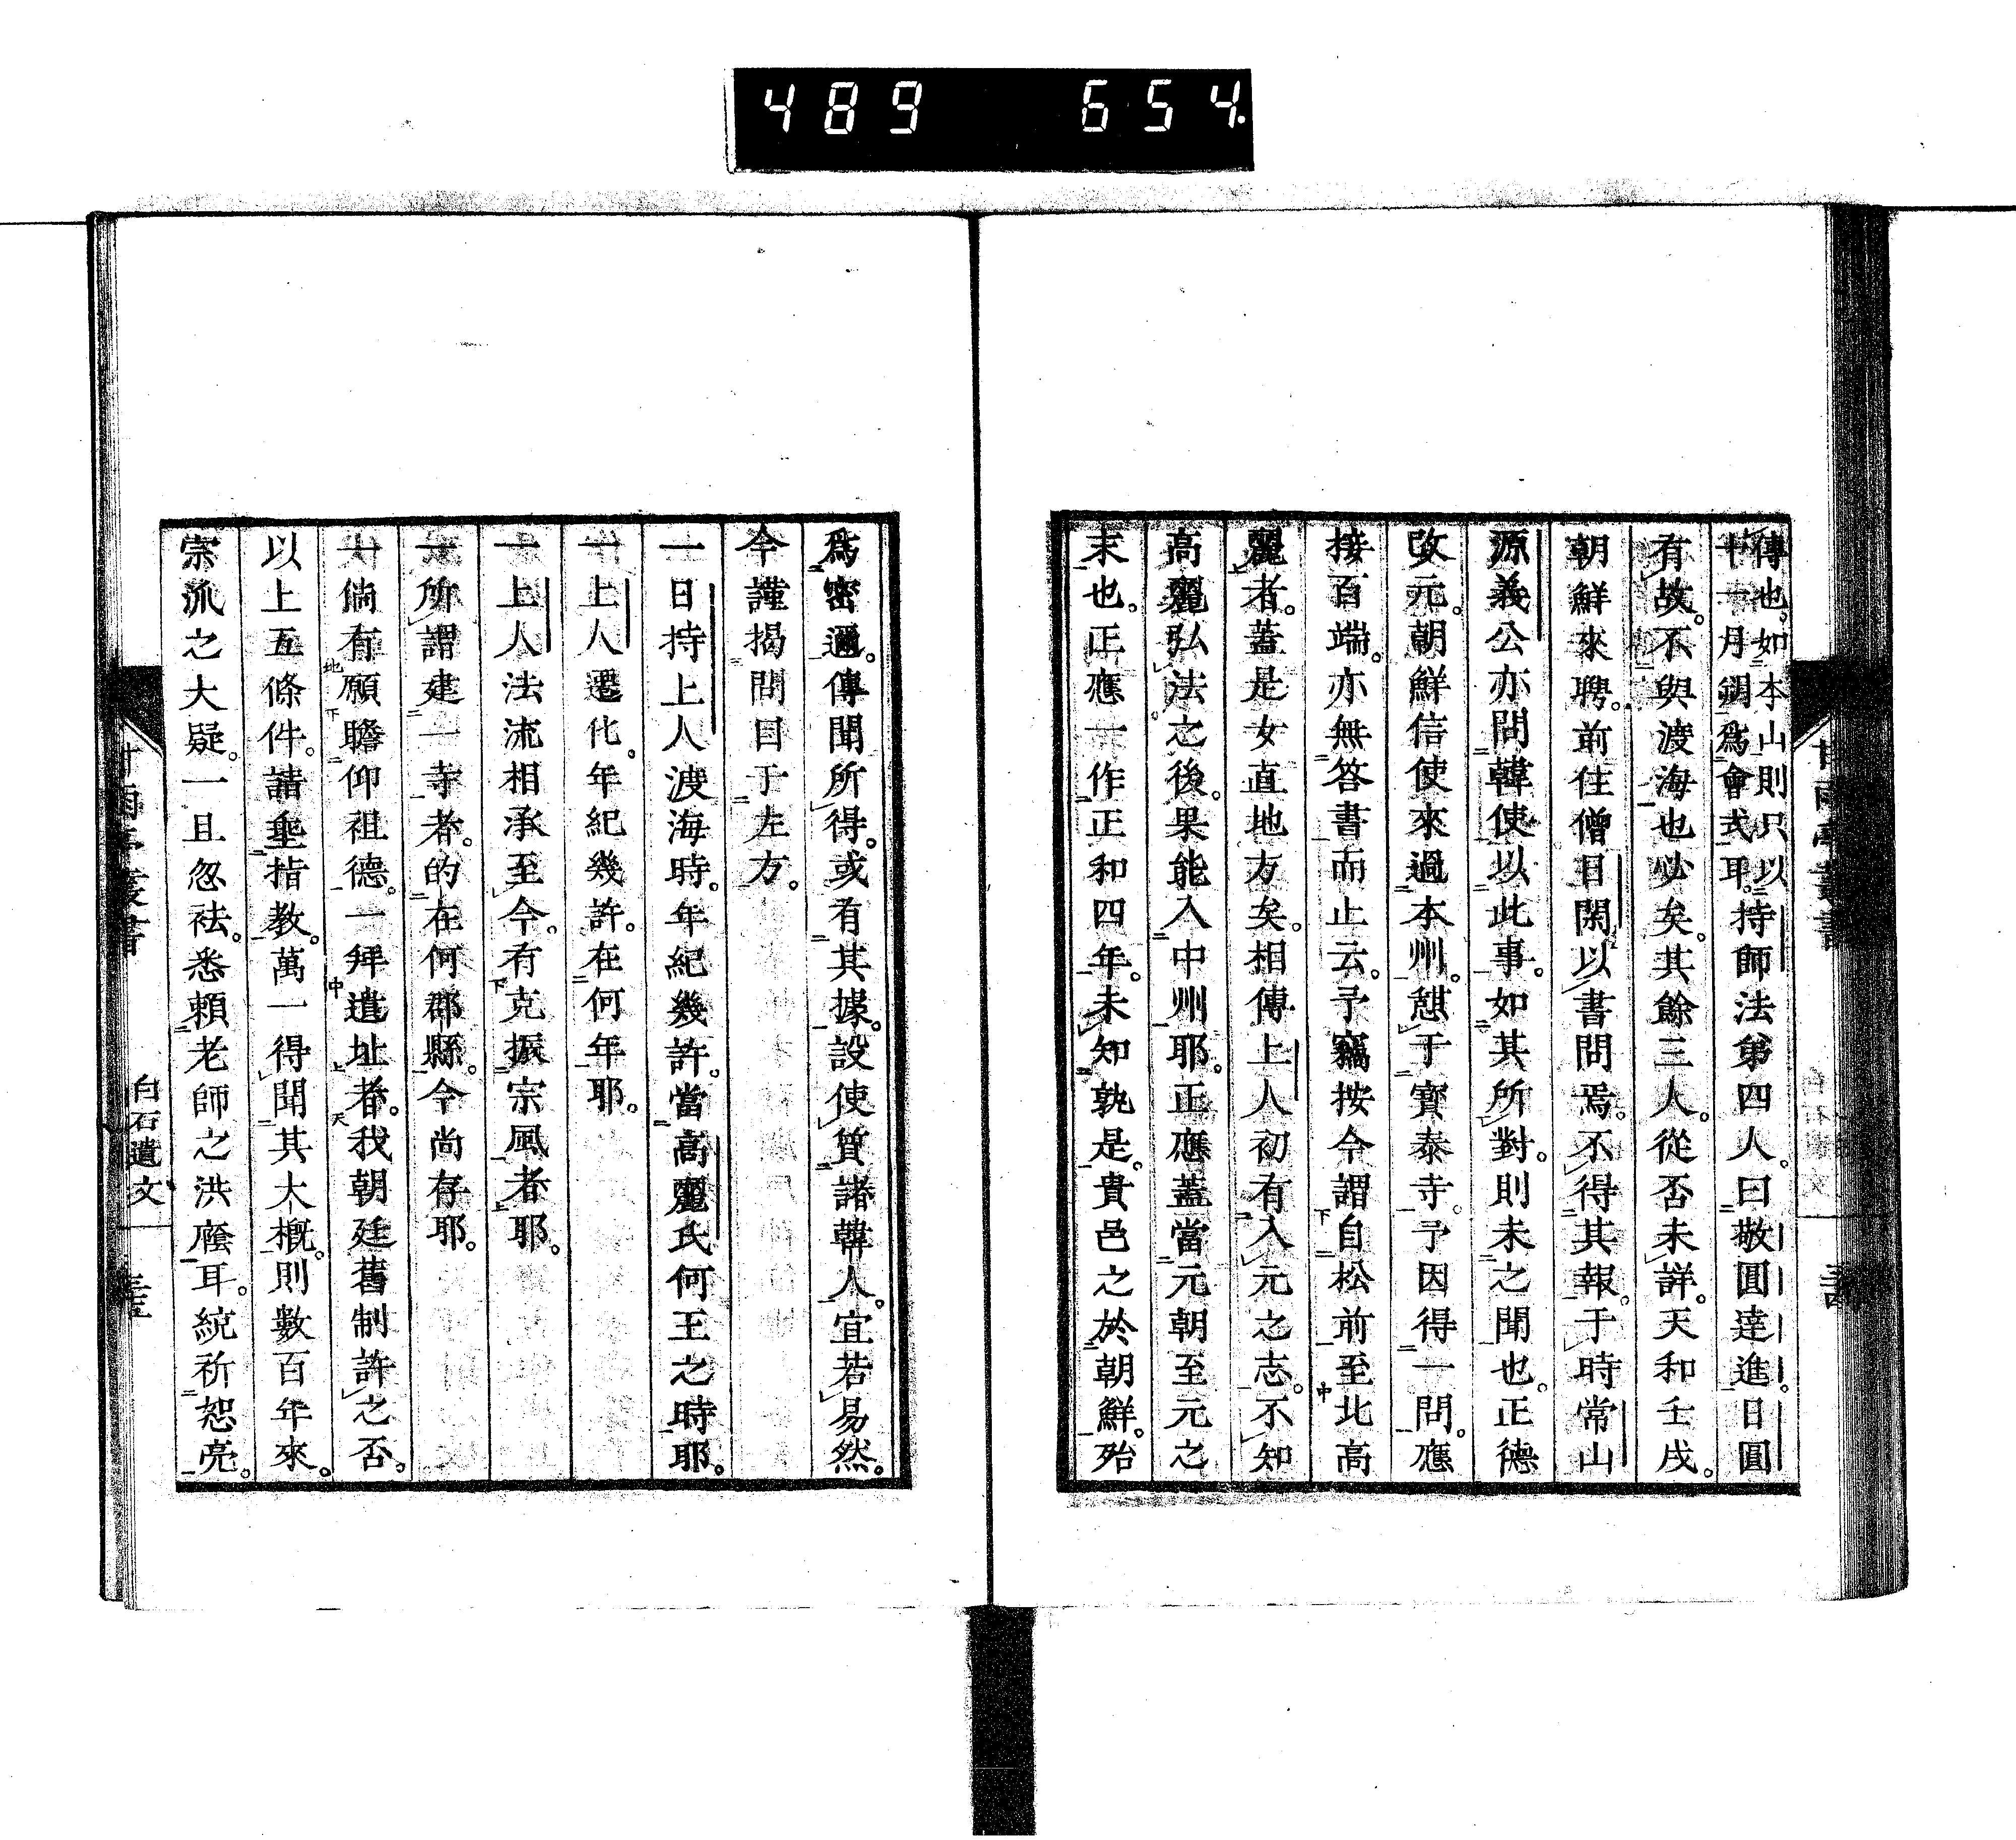 489 654
傳也、如本山則只以
十一月調爲會式耶。持師法弟四人。曰敬圓達進。日圓
有故。不與渡海也必矣。其餘三人。從否未詳。天和壬戌。
朝鮮來聘。前住僧日閑以書問焉。不得其報。于時常山
源義公亦問韓使以此事。如其所對。則未之聞也。正德
改元。朝鮮信使來過本州。憇于寶泰寺。予因得一問。應
接百端。亦無答書而止云。予竊按今謂自松前至北高
麗者。蓋是女直地方矣。相傳上人初有入元之志。不知
高麗弘法之後。果能入中州耶。正應蓋當元朝至元之
末也。正應一作正和四年。未知孰是。貴邑之於朝鮮。殆
爲密邇。傳聞所得。或有其據。設使質諸韓人。宜若易然。
今謹揭問目于左方。
一日持上人渡海時。年紀幾許。當高麗氏何王之時耶。
一上人遷化。年紀幾許。在何年耶。
一上人法流相承至今。有克振宗風者耶。
一所謂建一寺者。的在何郡縣。今尚存耶。
一倘有願瞻仰祖德。一拜遺址者。我朝廷舊制許之否。
以上五條件。請垂指教。萬一得聞其大槪。則數百年來。
宗派之大疑。一旦忽袪。悉賴老師之洪廕耳。統祈恕亮。
甘雨亭叢書
白石遺文